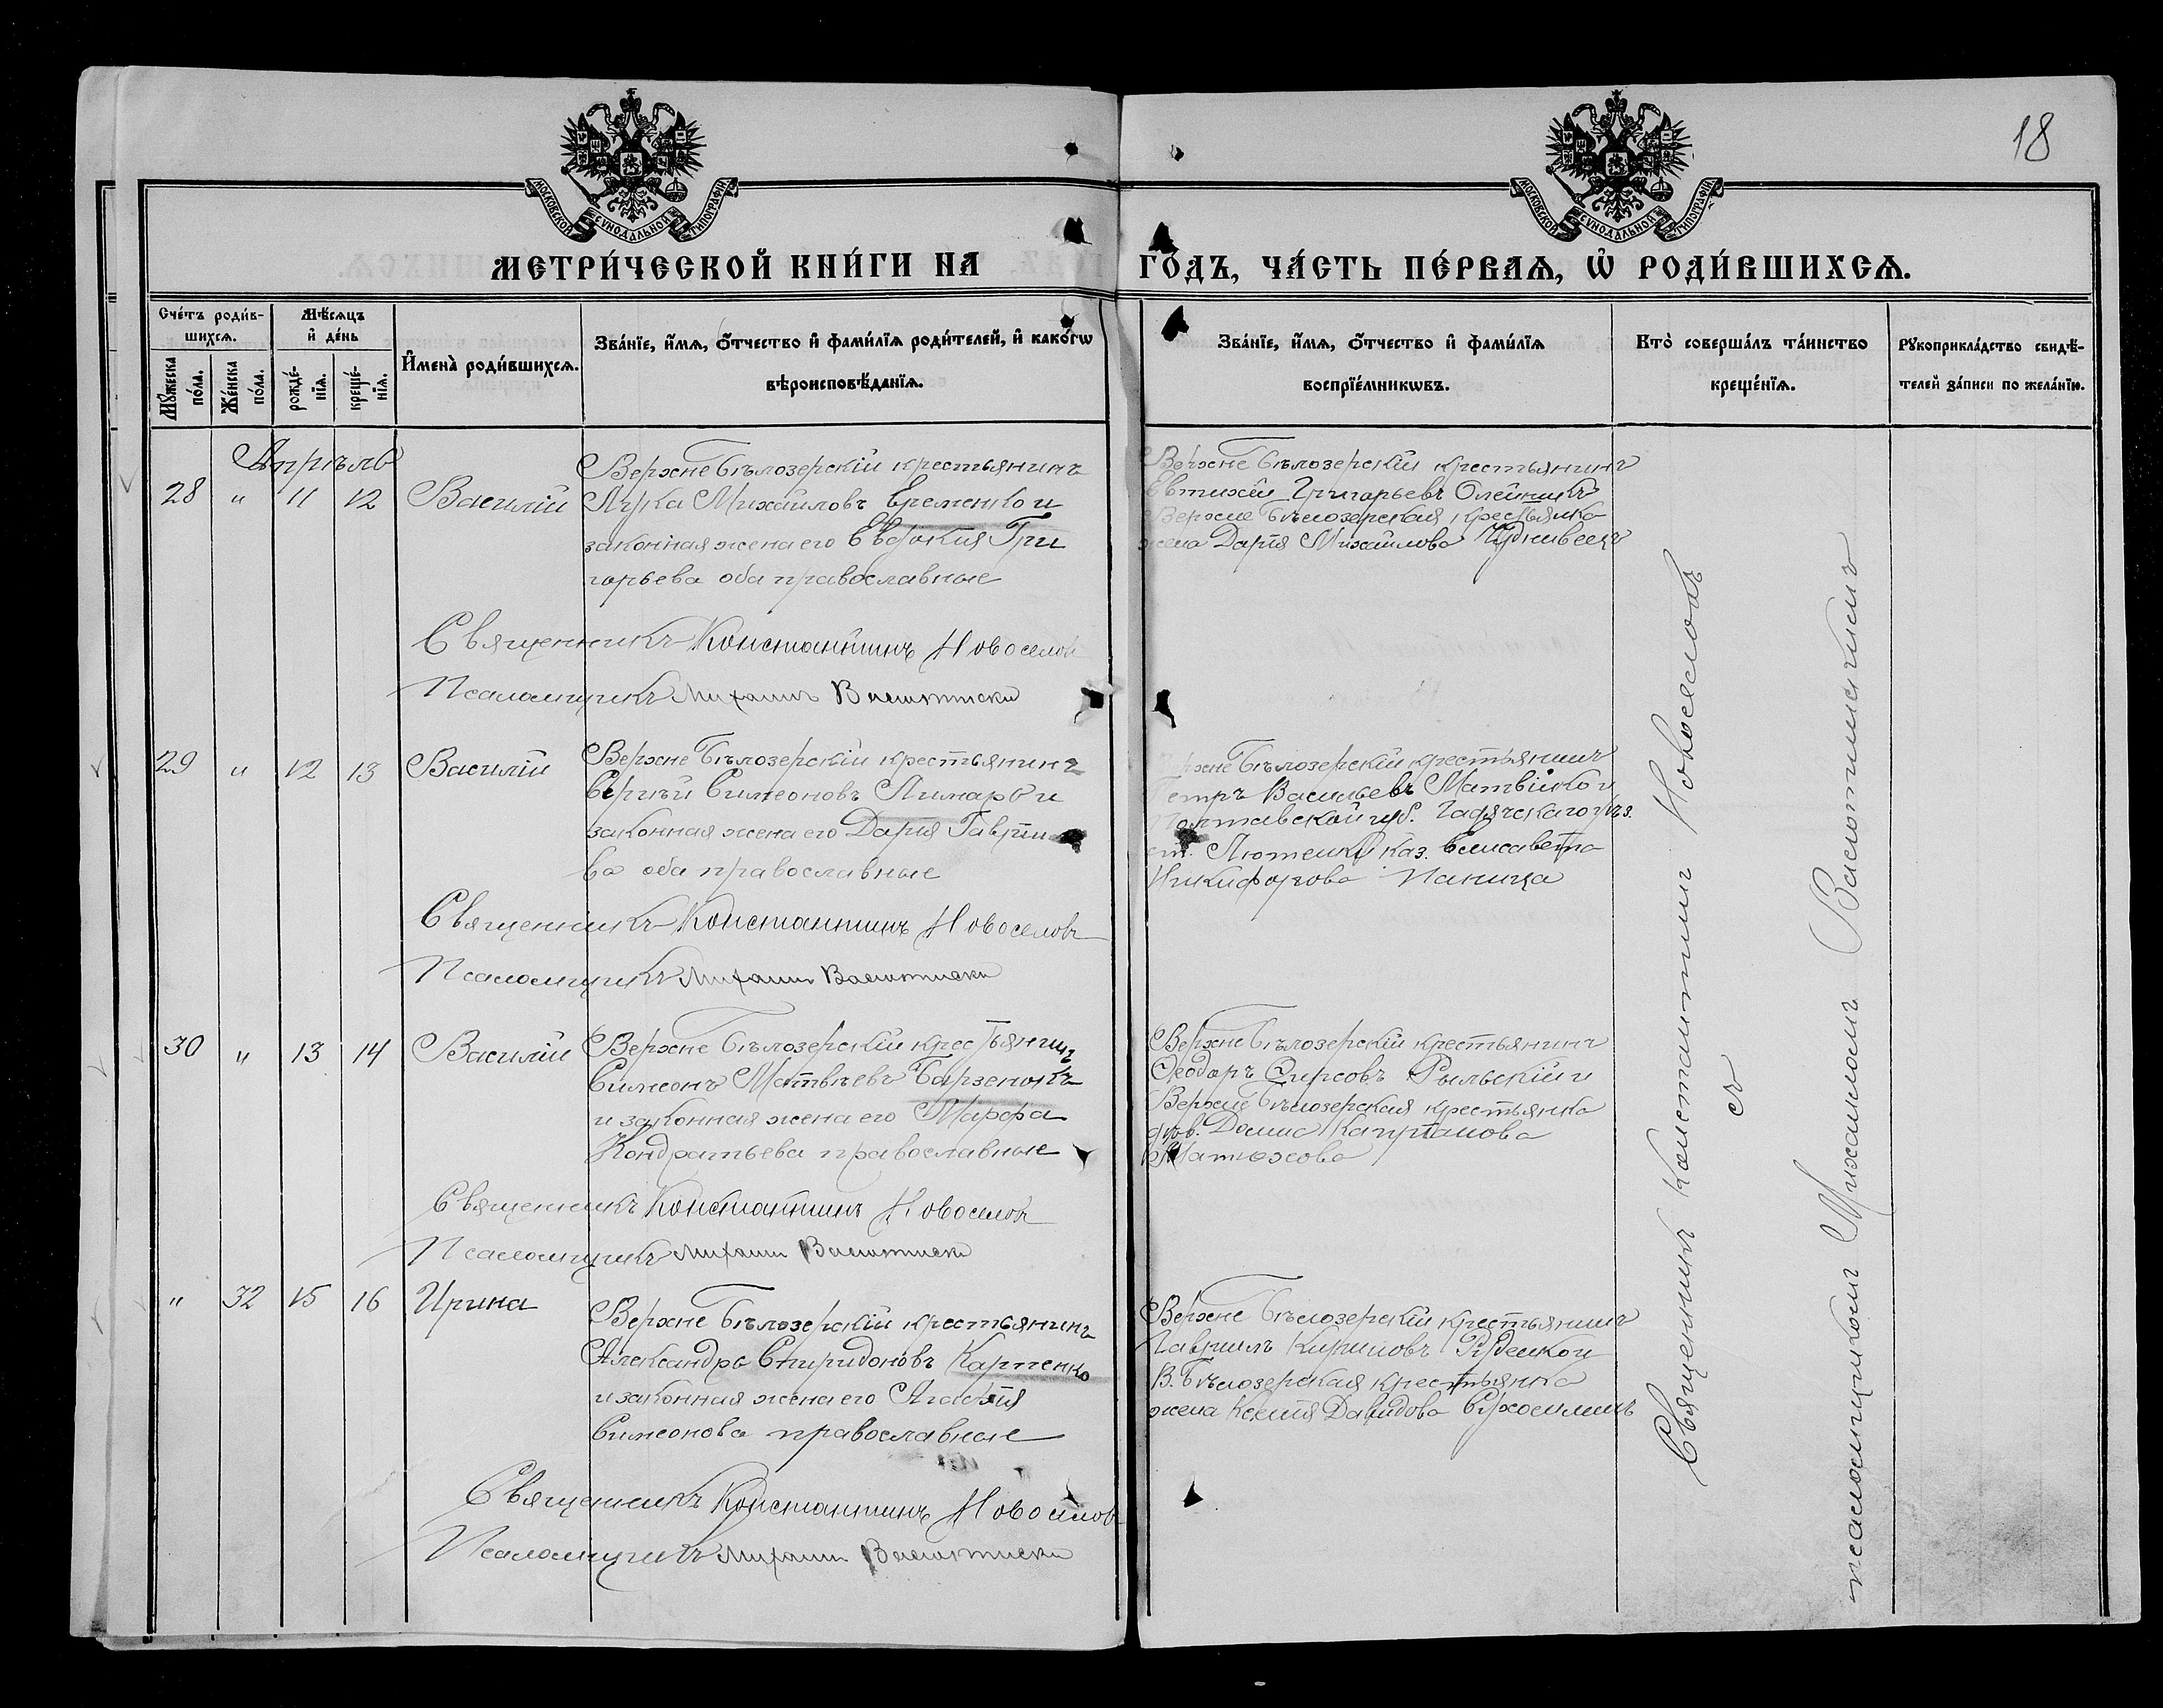 18
МОСКОВСКОЙ СУНОДАЛЬНОЙ ТИПОГРАФІИ
МОСКОВСКОЙ СУНОДАЛЬНОЙ ТИПОГРАФІИ
МЕТРИ́ЧЕСКОЙ КНИ́ГИ НА ГО́ДЪ, ЧА́СТЬ ПЕ́РВАЯ, Ѡ РОДИ́ВШИХСЯ.
Сче́тъ роди́в-
шихся.
Мѣ́сяцъ
и де́нь
Му́жеска по́ла.
Же́нска по́ла.
рожде́-
нія.
креще́-
нія.
Имена̀ роди́вшихся.
Зва́ніе, и́мя, о́тчество и фами́лія роди́телей, и како́гѡ
вѣроисповѣ́данія.
Зва́ніе, и́мя, о́тчество и фами́лія
воспріе́мникѡвъ.
Кто̀ соверша́лъ та́инство
креще́нія.
Рукоприкла́дство свидѣ́-
телей за́писи по жела́нію.
Апрѣль
28 " 11 12 Василій
Верхне Бѣлозерскій крестьянинъ
Лука Михайловъ Еременко и
законная жена его Евдокия Гри
горьева оба православные
Верхне Бѣлозерскій крестьянинъ
Евтихій Григорьевъ Олейникъ
Верхне Бѣлозерская крестьянка
жена Дарія Михайлова
Священникъ Константинъ Новоселовъ
Псаломщикъ Михаилъ
29 " 12 13 Василій
Верхне Бѣлозерскій крестьянинъ
Сергѣй Симеоновъ Лимарь и
законная жена его Дарія Гаврии
ва оба православные
Верхне Бѣлозерскій крестьянинъ
Петръ Васильевъ Матвійко и
Полтавской губ. Гадячскаго уѣз.
Лютенки каз. Елисавета
Никифорова Паница
Священникъ Константинъ Новоселовъ
Псаломщикъ Михаилъ
30 " 13 14 Василій
Верхне Бѣлозерскій крестьянинъ
Симеонъ Матвѣевъ Барзенокъ
и законная жена его Марфа
Кондратьева православные
Верхне Бѣлозерскій крестьянинъ
Ѳеодоръ Рыльскій и
Верхне Бѣлозерская крестьянка
дѣв. Домна
Матюхова
Священникъ Константинъ Новоселовъ
Псаломщикъ Михаилъ
" 32 15 16 Ирина
Верхне Бѣлозерскій крестьянинъ
Александръ Спиридоновъ Карпенко
и законная жена его Агафія
Симеонова православные
Верхне Бѣлозерскій крестьянинъ
Гавриилъ Кириловъ Руденко и
В. Бѣлозерская крестьянка
жена Ксенія Давидова
Священникъ Константинъ Новоселовъ
Псаломщикъ Михаилъ
Священникъ Константинъ Новоселовъ
съ
псаломщикомъ Михаиломъ